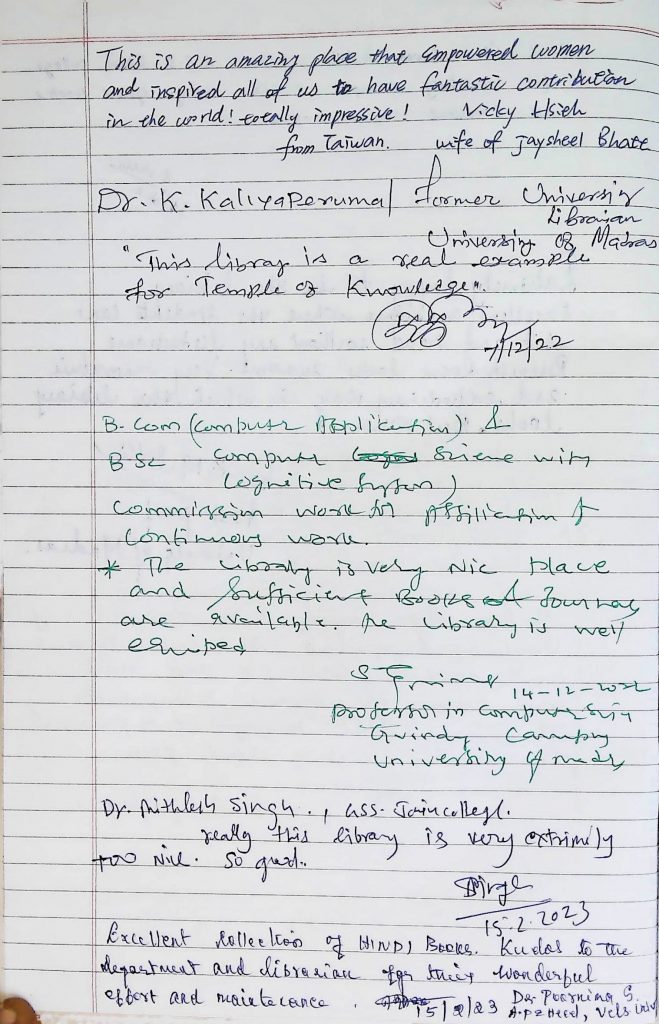 This is an amazing place that Empowered women
and inspired all of us to have fantastic contribution
in the world! totally impressive! Vicky Hsieh
from Taiwan. wife of Jaysheel Bhatt
Dr. K. Kaliyaperumal Former University
Librarian
University of Madras
"This library is a real example
for Temple of Knowledge".
7/12/22
B.Com (Computer Application) &
B.Sc Computer Science with
Cognitive System)
Commission work for Affiliation &
Continuous work.
* The Library is very Nic place
and Sufficient Books & Journals
are available. The Library is well
equiped
14-12-2022
Professor in Computer
Guindy Campus
University of Madras
Dr. Mithlesh Singh., Ass. Jain college.
really this library is very extrimily
too Nice. So good.
15.2.2023
Excellent collection of HINDI Books. Kudos to the
department and librarian for their wonderful
effort and maintenance. 15/2/23 Dr. Poornima S.
A.P & Head, Vels